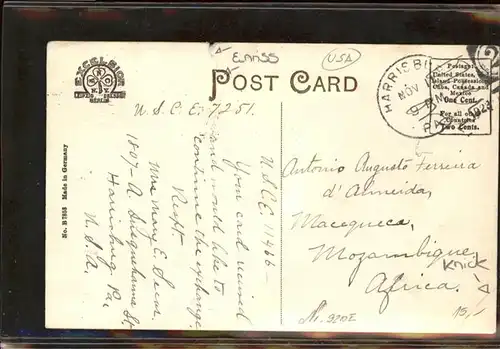 ELASS
USA
EXCELSIOR
LEIPZIG DRESDEN
BERLIN
POST CARD
HARRISBURG
NOV
PA.
1923
Postage:
United States,
Island Possessions,
Cuba, Canada and
Mexico.
One Cent.
For all other
Countries
Two Cents.
U.S.C.E. 7251.
U.S.C.E. 11466 –
Your card received
and would like to
continue the exchange.
Respt.
Mrs Mary E.
1807–A Susquehanna St.
Harrisburg Pa
U.S.A.
Antonio Augusto Ferreira
d'Almeida,
Macequeca,
Mozambique,
Africa.
Knick
15,-
No. B 7858 Made in Germany